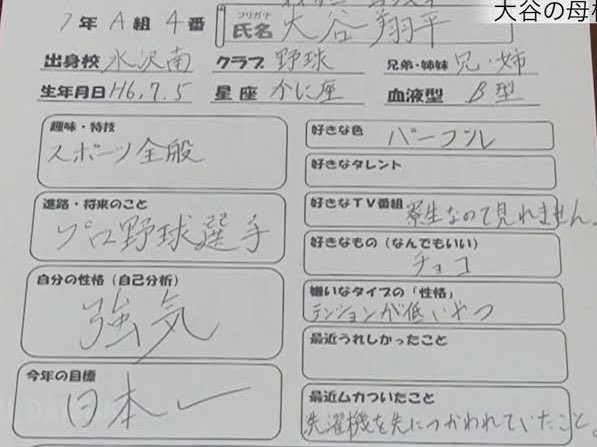 大谷の母校
1年A組4番
フリガナ
氏名 大谷翔平
出身校 水沢南 クラブ 野球 兄弟・姉妹 兄・姉
生年月日 H6.7.5 星座 かに座 血液型 B型
趣味・特技
スポーツ全般
進路・将来のこと
プロ野球選手
自分の性格(自己分析)
強気
今年の目標
日本一
好きな色 パープル
好きなタレント
好きなTV番組 寮生なので見れません。
好きなもの(なんでもいい)
チョコ
嫌いなタイプの「性格」
テンションが低いやつ
最近うれしかったこと
最近ムカついたこと
洗濯機を先につかわれていたこと。